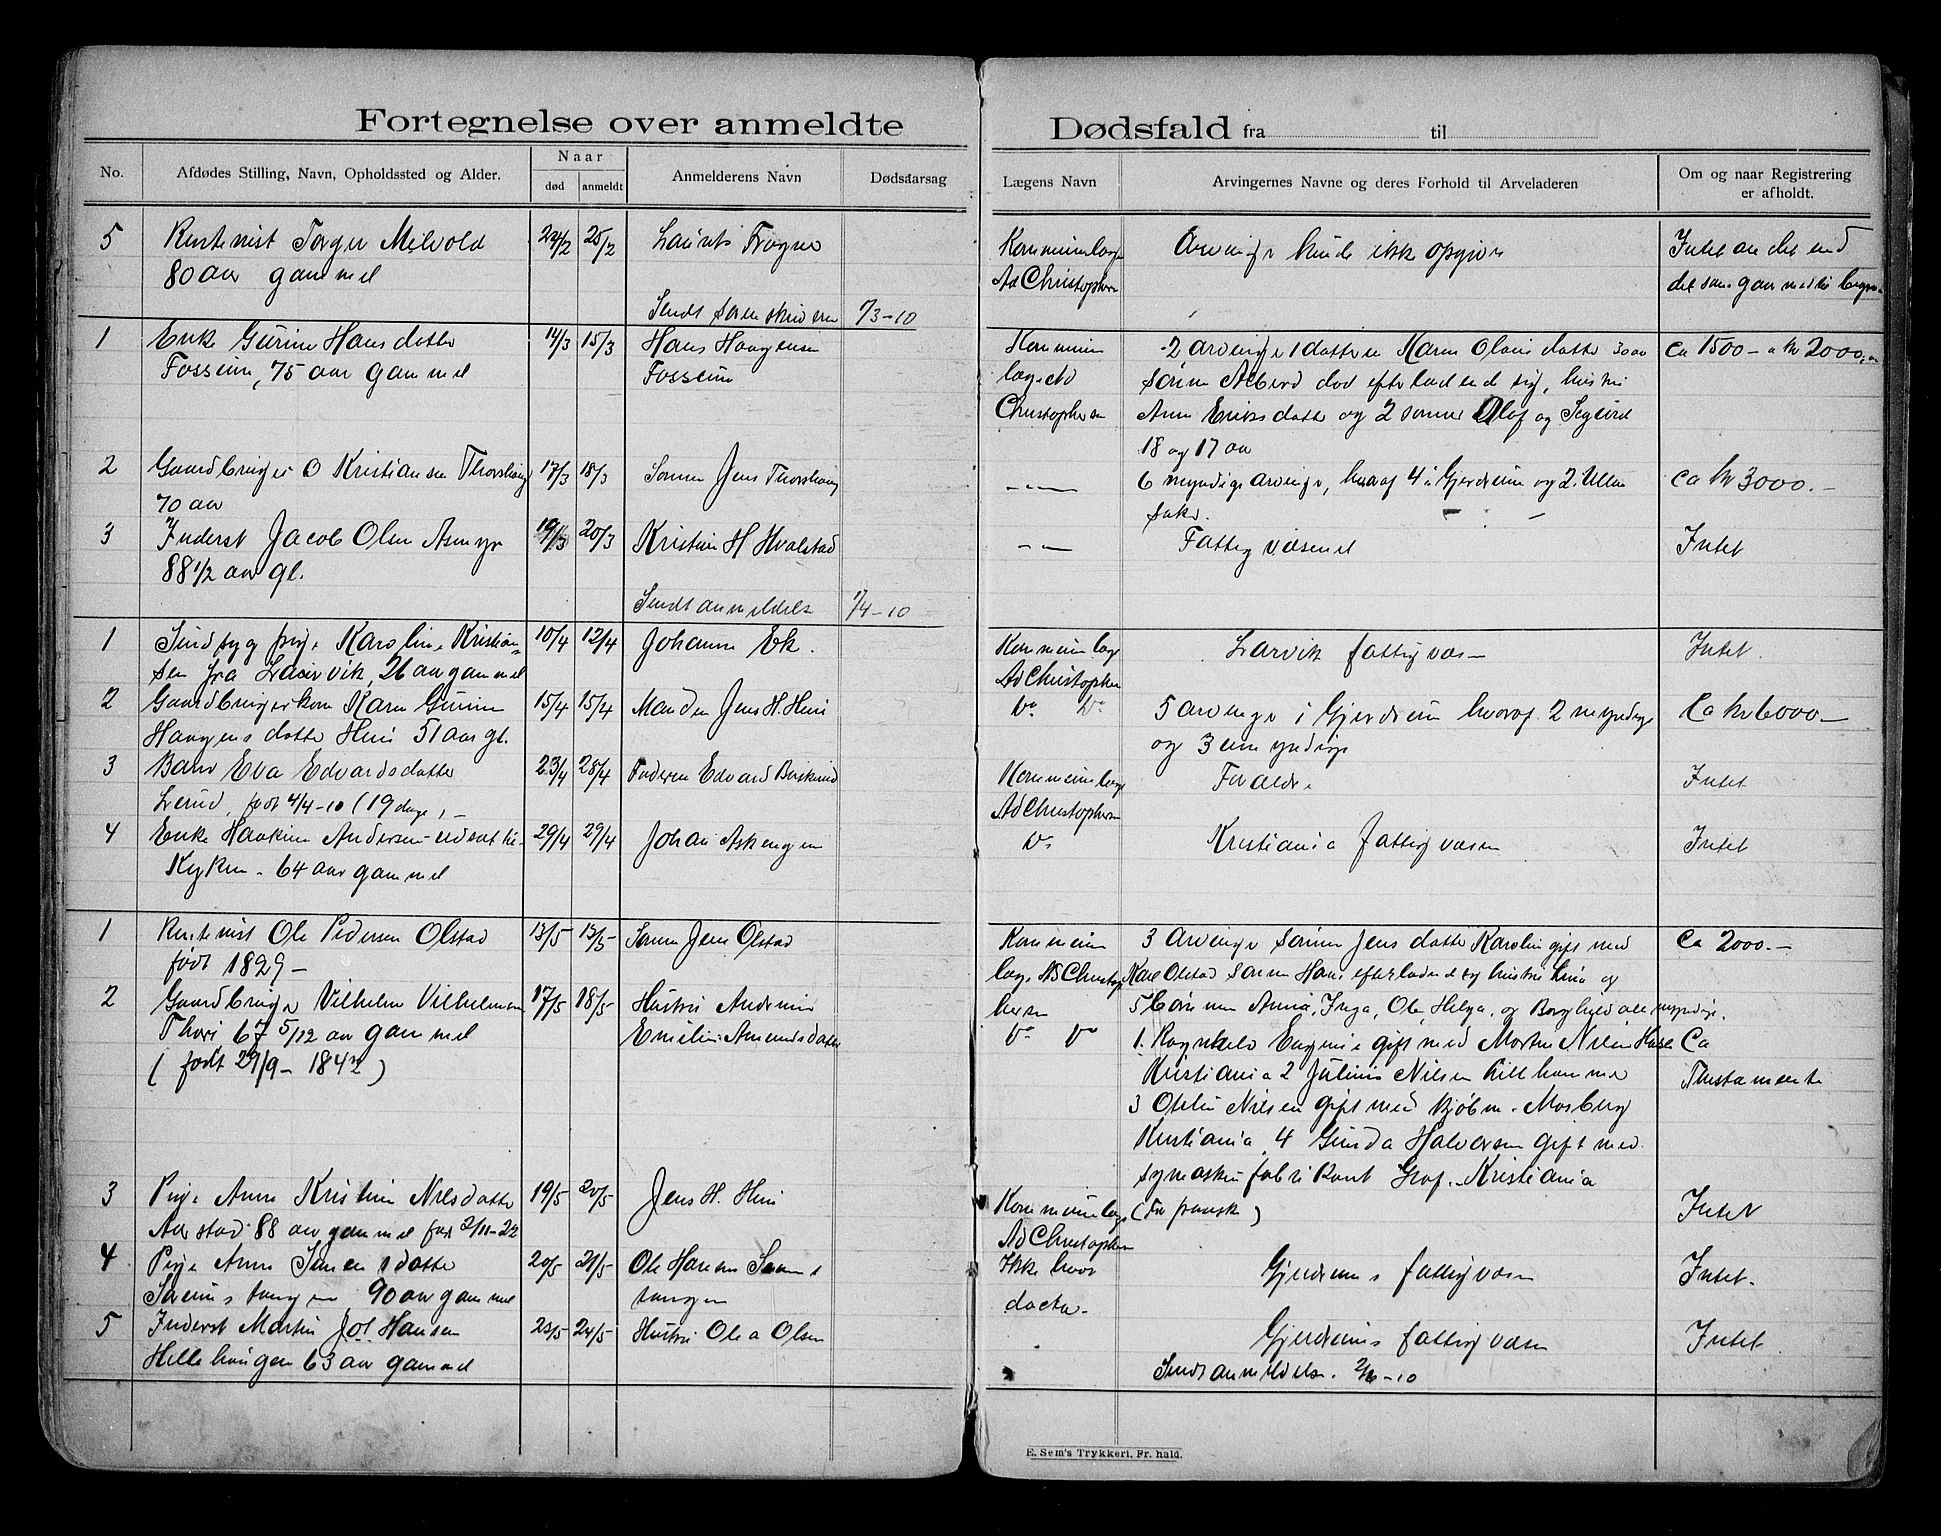 Fortegnelse over anmeldte Dødsfald fra til
No.
Afdødes Stilling, Navn, Opholdssted og Alder.
Naar
død anmeldt
Anmelderens Navn
Dødsaarsag
Lægens Navn
Arvingernes Navne og deres Forhold til Arveladeren
Om og naar Registrering
er afholdt.
5 Rentenist Torger Milvold 24/2 25/2 Laurits Trogne
80 aar gammel
Sendt sorenskriveren 1/3-10
Kommunelæge
Ad Christophersen
Arvinger kunde ikke opgives
Intet andet end
det som gaar med til begra-
1 Enke Gurine Hansdatter 14/3 15/3 Hans Haagensen
Fosseum, 75 aar gammel Fosseum
Kommune
læge Ad
Christophersen
2 arvinger 1 datter Karen Olausdatter 30 aar
sønnen Albert død efterladende sig, hustru
Anne Eriksdatter og 2 sønner Olaf og Sigurd
18 og 17 aar
Ca 1500 - a kr 2000,00
2 Gaardbruger O Kristiansen Thorshaug 17/3 18/3 Sønnen Jens Thorshaug
70 aar
6 myndige arvinger, hvoraf 4 i Gjerdrum og 2 i Ullen
saker.
Ca kr 3000.-
3 Inderst Jacob Olsen Asmyr 19/3 20/3 Kristian H Hvalstad
88 1/2 aar gl.
Fattigvæsenet
Intet
Sendt anmeldelse 1/4-10
1 Sindsyg pige Karoline Kristian- 10/4 12/4 Johannes Ek.
sen fra Laurvik, 26 aar gammel
Kommunelæge
Ad Christophersen
Larvik fattigvæsen
Intet.
2 Gaardbrugerkone Karen Gurine 15/4 15/4 Manden Jens H. Heni
Haagensdatter Heni 51 aar gl.
Do Do
5 arvinger i Gjerdrum hvoraf 2 myndige
og 3 umyndige
Ca kr 6000-
3 Barn Eva Edvardsdatter 23/4 25/4 Faderen Edvard
Lerud, født 4/4-10 (19 dage, -
Kommunelæge
Ad Christophersen
Forældre
Intet
4 Enke Haakine Andersen udsat til 29/4 29/4 Johan Askengen
Kyken - 64 aar gammel
Do
Kristiania fattigvæsen
Intet
1 Rentenist Ole Pedersen Olstad 13/5 13/5 Sønnen Jens Olstad
født 1829 -
Kommune
læge Ad Christop
hersen
3 arvinger sønnen Jens datter Karoline gift med
Karl Olstad sønnen Hans efterladende sig hustru Lina og
5 børn men Anna, Inga, Ole, Helga, og Borghild alle myndige.
Ca 2000.-
2 Gaardbruger Vilhelm Vilhelmsen 17/5 18/5 Hustru Andrine
Thori 67 5/12 aar gammel Emilie Amundsdatter
(født 29/9 - 1842)
Do Do
1. Ragnhild Eugenie gift med Morten Nilsen
Kristiania 2 Julius Nilsen Lillehammer
3 Otelie Nilsen gift med Kjøbm. Mosberg
Kristiania, 4 Gunda Halvorsen gift med
symaskinfabrikant Graf. Kristiania
(Fr franske)
Ca
Thestamente
3 Pige Anne Kristine Nilsdatter 19/5 20/5 Jens H. Heni
Aarstad 88 aar gammel fød 2/11-22
Kommunelæge
Ad Christophersen
Intet
4 Pige Anne Simensdatter 20/5 21/5 Ole Hansen
tangen 90 aar gammel tangen
Ikke havt
doctor.
Gjerdrums fattigvæsen
Intet.
5 Inderst Martin Joh Hansen 23/5 24/5 Hustru Olea Olsen
Hellehaugen 63 aar gammel
Gjerdrums fattigvæsen
Intet.
Sendt anmeldelse. 2/6-10
E. Sem's Trykkeri, Fr. hald.